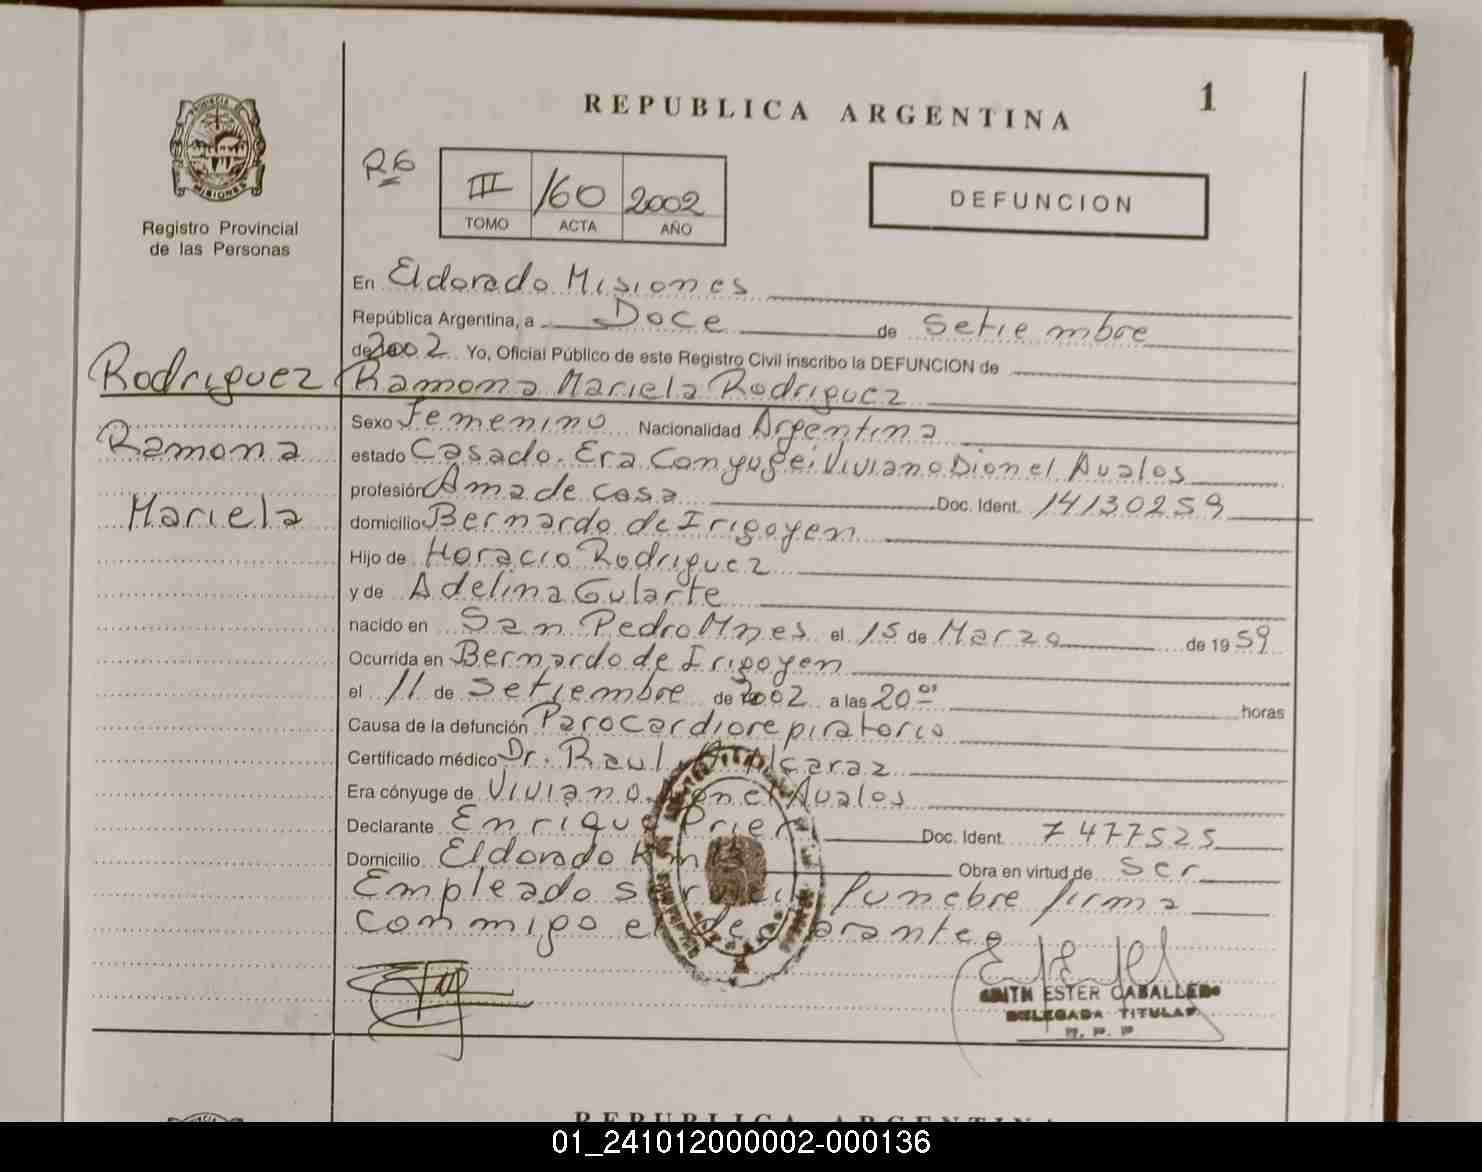 REPUBLICA ARGENTINA
1
PROVINCIA DE
MISIONES
Registro Provincial
de las Personas
R6
III 160 2002
TOMO ACTA AÑO
DEFUNCION
En Eldorado Misiones
República Argentina, a Doce de Setiembre
de 2002 Yo, Oficial Público de este Registro Civil inscribo la DEFUNCION de
Rodriguez Ramona Mariela Rodriguez
Sexo Femenino Nacionalidad Argentina
Ramona
estado Casado. Era Conyuge: Viviano Dionel Avalos
profesión Ama de casa Doc. Ident. 14130259
Mariela
domicilio Bernardo de Irigoyen
Hijo de Horacio Rodriguez
y de Adelina Gularte
nacido en San Pedro Mnes el 15 de Marzo de 1959
Ocurrida en Bernardo de Irigoyen
el 11 de Setiembre de 2002 a las 20 horas
Causa de la defunción Parocardiorepiratorio
Certificado médico Dr. Raul Alcaraz
Era cónyuge de Viviano Dionel Avalos
Declarante Enrique Prier Doc. Ident. 7477525
Domicilio Eldorado Km Obra en virtud de Ser
Empleado servicio funebre firma
conmigo el declarante
EDITH ESTER CABALLERO
DELEGADA TITULAR
R. P. P
REPUBLICA ARGENTINA
01_241012000002-000136